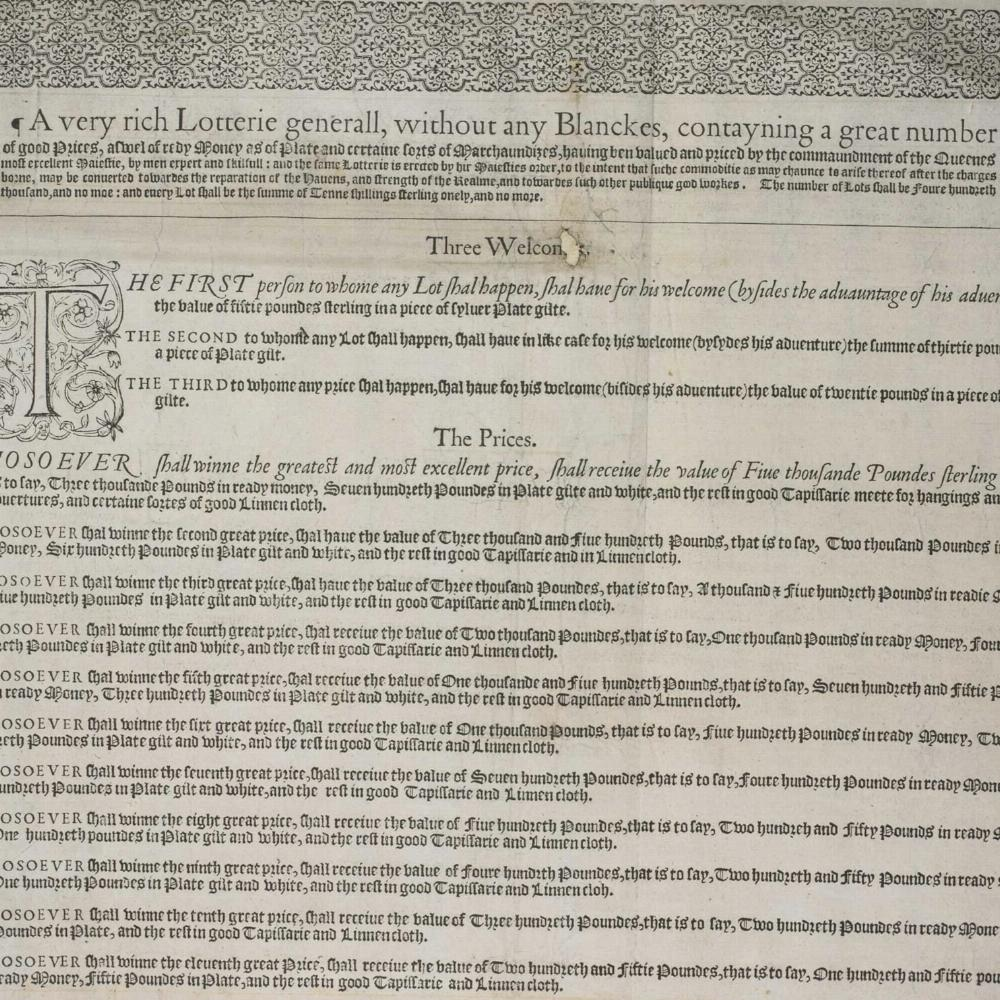 ¶ A very rich Lotterie generall, without any Blanckes, contayning a great number
of good Prices, aswel of redy Money as of Plate and certaine sorts of Marchaundizes, having ben valued and priced by the commaundment of the Queenes
most excellent Maiestie, by men expert and skilfull: and the same Lotterie is erected by hir Maiesties order, to the intent that suche commoditie as may chaunce to arise thereof after the charges
borne, may be conuerted towardes the reparation of the Hauens, and strength of the Realme, and towardes such other publique good workes. The number of Lots shall be Foure hundreth
thousand, and no moe: and euery Lot shall be the summe of Tenne shillings sterling onely, and no more.
Three
THE FIRST person to whome any Lot shal happen, shal haue for his welcome (bysides the aduauntage of his
the value of fiftie poundes sterling in a piece of syluer Plate gilte.
THE SECOND to whome any Lot shall happen, shall haue in like case for his welcome (bysydes his aduenture) the summe of thirtie
a piece of Plate gilt.
THE THIRD to whome any price shal happen, shal haue for his welcome (bisides his aduenture) the value of twentie pounds in a piece of
gilte.
The Prices.
HOSOEVER shall winne the greatest and most excellent price, shall receiue the value of Fiue thousande Poundes sterling
to say, Three thousande Pounds in ready money, Seuen hundreth Poundes in Plate gilte and white, and the rest in good Tapissarie meete for hangings
ouertures, and certaine sortes of good Linnen cloth.
OSOEVER shal winne the second great price, shal haue the value of Three thousand and Fiue hundreth Pounds, that is to say, Two thousand Poundes
Money, Six hundreth Poundes in Plate gilt and white, and the rest in good Tapissarie and in Linnen cloth.
OSOEVER shall winne the third great price, shal haue the value of Three thousand Poundes, that is to say, A thousand & Fiue hundreth Pounds in readie
iue hundreth Poundes in Plate gilt and white, and the rest in good Tapissarie and Linnen cloth.
OSOEVER shall winne the fourth great price, shal receiue the value of Two thousand Poundes, that is to say, One thousand Pounds in ready Money, Four
reth Poundes in Plate gilt and white, and the rest in good Tapissarie and Linnen cloth.
OSOEVER shal winne the fifth great price, shal receiue the value of One thousande and Fiue hundreth Pounds, that is to say, Seuen hundreth and Fiftie P
ready Money, Three hundreth Poundes in Plate gilt and white, and the rest in good Tapissarie and Linnen cloth.
OSOEVER shall winne the sixt great price, shall receiue the value of One thousand Pounds, that is to say, Fiue hundreth Poundes in ready Money, Tw
reth Poundes in Plate gilt and white, and the rest in good Tapissarie and Linnen cloth.
OSOEVER shall winne the seuenth great price, shall receiue the value of Seuen hundreth Poundes, that is to say, Foure hundreth Poundes in ready Mone
undreth Poundes in Plate gilt and white, and the rest in good Tapissarie and Linnen cloth.
OSOEVER shall winne the eight great price, shall receiue the value of Fiue hundreth Poundes, that is to say, Two hundreh and Fifty Pounds in ready
One hundreth poundes in Plate gilt and white, and the rest in good Tapissarie and Linnen cloth.
OSOEVER shall winne the ninth great price, shall receiue the value of Foure hundrth Poundes, that is to say, Two hundreth and Fifty Poundes in ready
One hundreth Poundes in Plate gilt and white, and the rest in good Tapissarie and Linnen cloh.
OSOEVER shall winne the tenth great price, shall receiue the value of Three hundreth Poundes, that is to say, Two hundreth Poundes in ready Mone
Poundes in Plate, and the rest in good Tapissarie and Linnen cloth.
OSOEVER shall winne the eleuenth great Price, shall receiue the value of Two hundreth and Fiftie Poundes, that is to say, One hundreth and Fiftie
eady Money, Fiftie Poundes in Plate, and the rest in good Tapissarie and Linnen cloth.